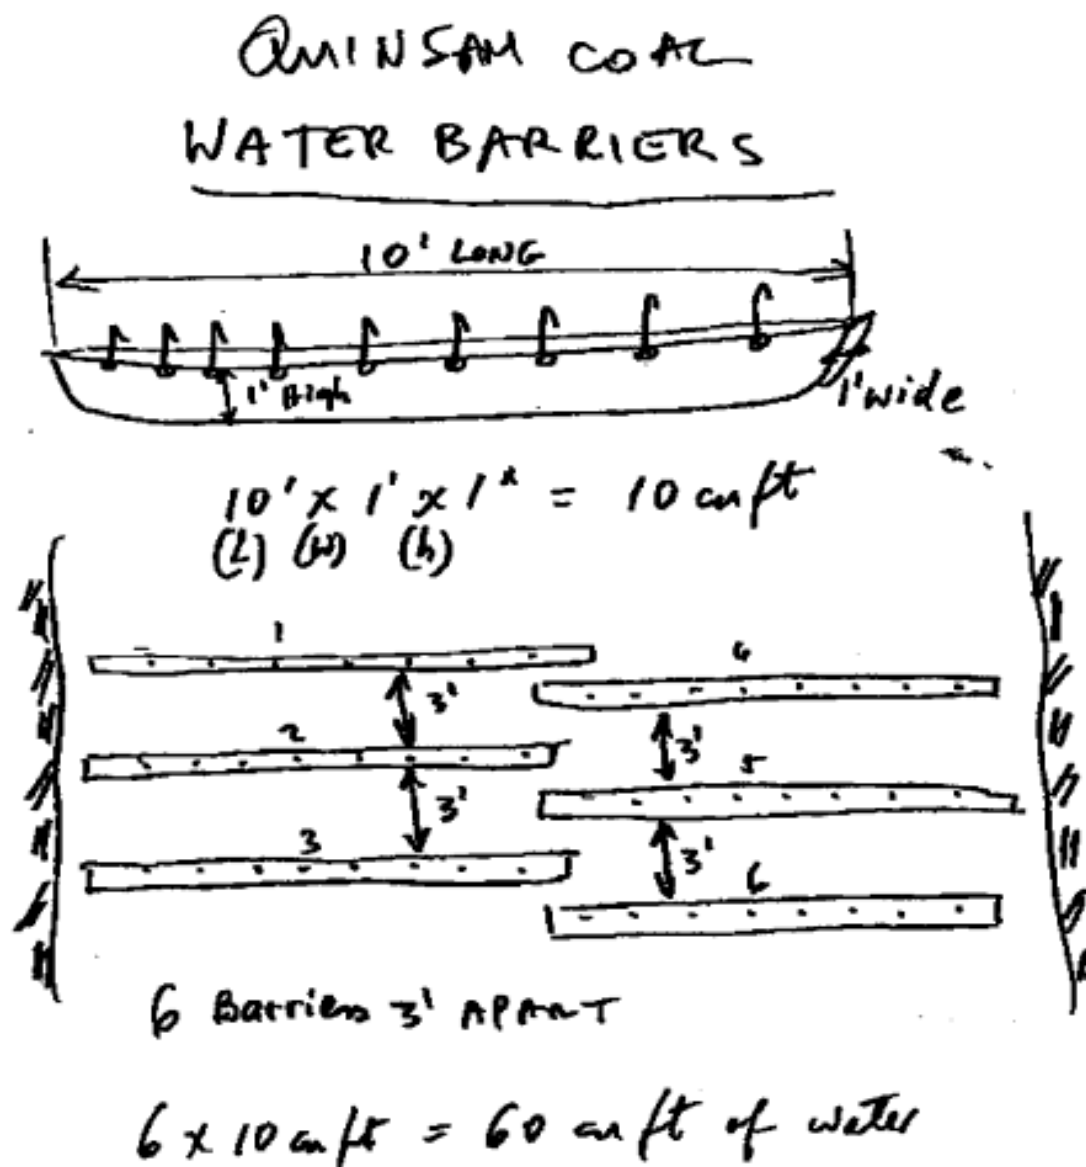 QUINSAM COAL
WATER BARRIERS
10' LONG
1' High
1' wide
10' x 1' x 1' = 10 cu ft
(L) (W) (h)
1
4
3'
2
3'
5
3'
3
3'
6
6 Barriers 3' APART
6 x 10 cu ft = 60 cu ft of water